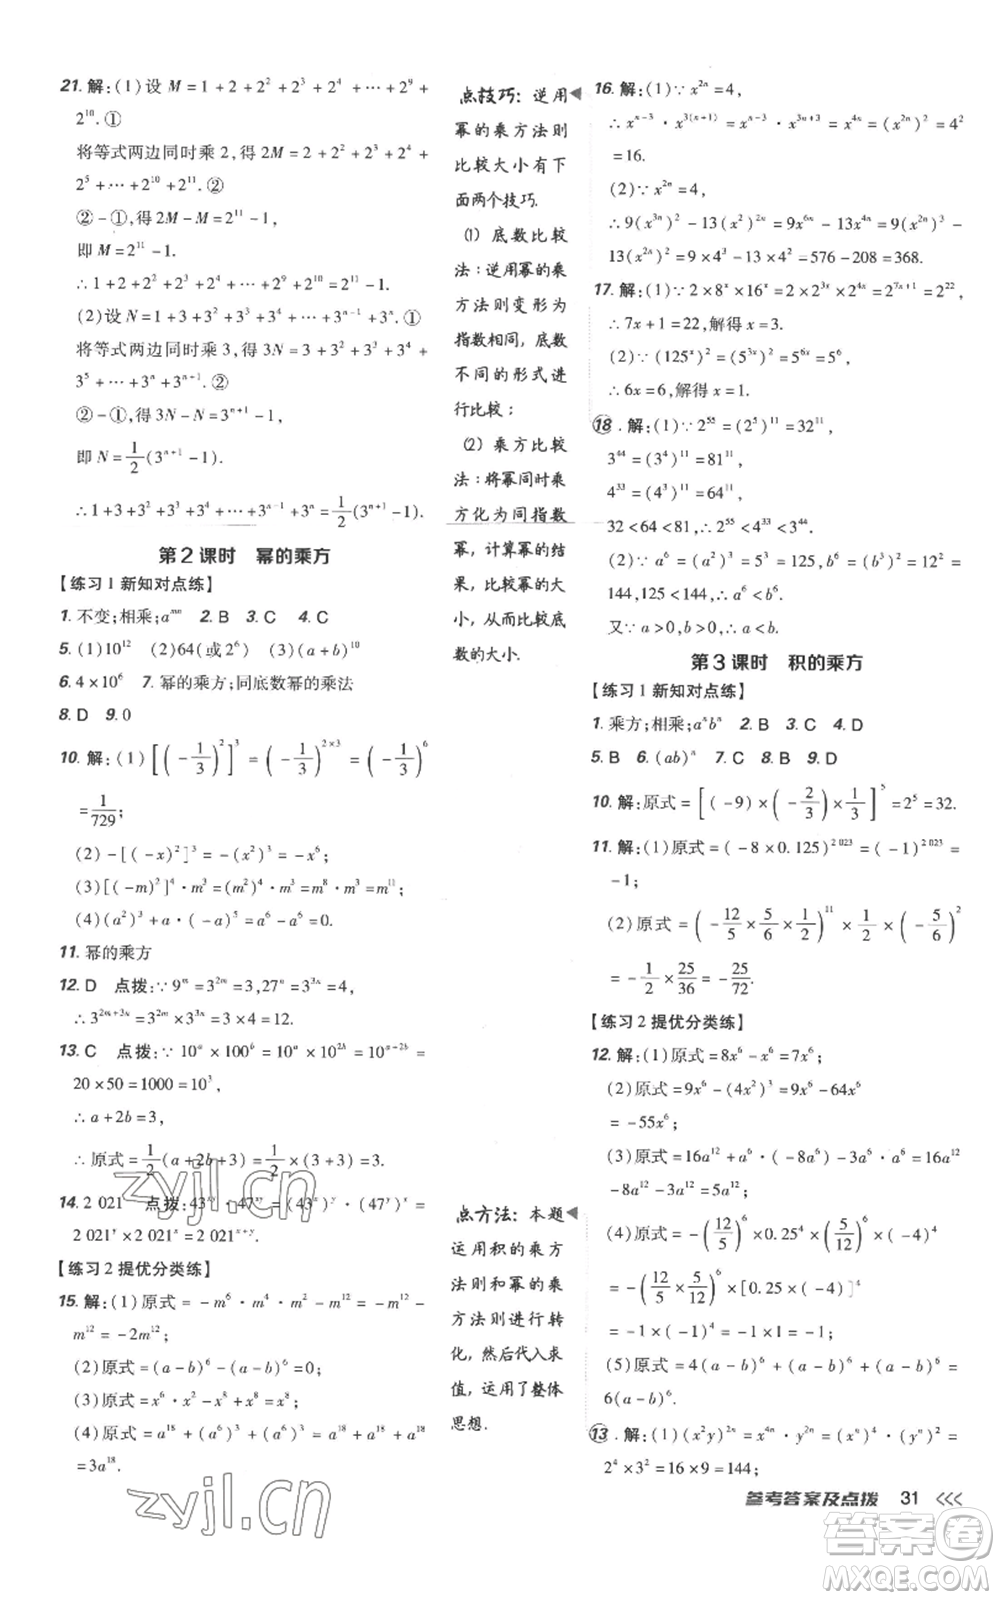 21. 解:(1)设 M=1+2+2²+2³+2⁴+…+2⁹+
2¹⁰.①
将等式两边同时乘2,得2M=2+2²+2³+2⁴+
2⁵+…+2¹⁰+2¹¹.②
②-①,得2M-M=2¹¹-1,
即 M=2¹¹-1.
∴1+2+2²+2³+2⁴+…+2⁹+2¹⁰=2¹¹-1.
(2)设 N=1+3+3²+3³+3⁴+…+3ⁿ⁻¹+3ⁿ.①
将等式两边同时乘3,得3N=3+3²+3³+3⁴+
3⁵+…+3ⁿ+3ⁿ⁺¹.②
②-①,得3N-N=3ⁿ⁺¹-1,
即 N=1/2(3ⁿ⁺¹-1).
∴1+3+3²+3³+3⁴+…+3ⁿ⁻¹+3ⁿ=1/2(3ⁿ⁺¹-1).
第2课时 幂的乘方
【练习1新知对点练】
1. 不变;相乘;a^{mn} 2. B 3. C 4. C
5. (1)10¹² (2)64(或2⁶) (3)(a+b)¹⁰
6. 4×10⁶ 7. 幂的乘方;同底数幂的乘法
8. D 9. 0
10. 解:(1)[(-1/3)²]³=(-1/3)^{2×3}=(-1/3)⁶
=1/729;
(2)-[(-x)²]³=-(x²)³=-x⁶;
(3)[(-m)²]⁴·m³=(m²)⁴·m³=m⁸·m³=m¹¹;
(4)(a²)³+a·(-a)⁵=a⁶-a⁶=0.
11. 幂的乘方
12. D 点拨:∵9^m=3^{2m}=3,27^n=3^{3n}=4,
∴3^{2m+3n}=3^{2m}×3^{3n}=3×4=12.
13. C 点拨:∵10^a×100^b=10^a×10^{2b}=10^{a+2b}=
20×50=1000=10³,
∴a+2b=3,
∴原式=1/2(a+2b+3)=1/2×(3+3)=3.
14. 2 021 点拨:43^{xy}·47^{xy}=(43^x)^y·(47^y)^x=
2 021^y×2 021^x=2 021^{x+y}.
【练习2提优分类练】
15. 解:(1)原式=-m⁶·m⁴·m²-m¹²=-m¹²-
m¹²=-2m¹²;
(2)原式=(a-b)⁶-(a-b)⁶=0;
(3)原式=x⁸+x⁸-x⁸+x⁸=2x⁸;
(4)原式=a¹⁸+(a⁶)³+(a²)⁹=a¹⁸+a¹⁸+a¹⁸
=3a¹⁸.
点技巧:逆用
幂的乘方法则
比较大小有下
面两个技巧.
(1)底数比较
法:逆用幂的乘
方法则变形为
指数相同,底数
不同的形式进
行比较;
(2)乘方比较
法:将幂同时乘
方化为同指数
幂,计算幂的结
果,比较幂的大
小,从而比较底
数的大小.
点方法:本题
运用积的乘方
法则和幂的乘
方法则进行转
化,然后代入求
值,运用了整体
思想.
16. 解:(1)∵x^{2n}=4,
∴x^{n-3}·x^{3(n+1)}=x^{n-3}·x^{3n+3}=x^{4n}=(x^{2n})²=4²
=16.
(2)∵x^{2n}=4,
∴9(x^{3n})²-13(x²)^{2n}=9x^{6n}-13x^{4n}=9(x^{2n})³-
13(x^{2n})²=9×4³-13×4²=576-208=368.
17. 解:(1)∵2×8^x×16^x=2×2^{3x}×2^{4x}=2^{7x+1}=2²²,
∴7x+1=22,解得x=3.
(2)∵(125^x)²=(5^{3x})²=5^{6x}=5⁶,
∴6x=6,解得x=1.
18. 解:(1)∵2⁵⁵=(2⁵)¹¹=32¹¹,
3⁴⁴=(3⁴)¹¹=81¹¹,
4³³=(4³)¹¹=64¹¹,
32<64<81,∴2⁵⁵<4³³<3⁴⁴.
(2)∵a⁶=(a²)³=5³=125,b⁶=(b³)²=12²=
144,125<144,∴a⁶<b⁶.
又∵a>0,b>0,∴a<b.
第3课时 积的乘方
【练习1新知对点练】
1. 乘方;相乘;aⁿbⁿ 2. B 3. C 4. D
5. B 6. (ab)ⁿ 7. C 8. B 9. D
10. 解:原式=[(-9)×(-2/3)×1/3]⁵=2⁵=32.
11. 解:(1)原式=(-8×0.125)^{2 023}=(-1)^{2 023}=
-1;
(2)原式=(-12/5×5/6×1/2)¹¹×1/2×(-5/6)²
=-1/2×25/36=-25/72.
【练习2提优分类练】
12. 解:(1)原式=8x⁶-x⁶=7x⁶;
(2)原式=9x⁶-(4x²)³=9x⁶-64x⁶
=-55x⁶;
(3)原式=16a¹²+a⁶·(-8a⁶)-3a¹²=16a¹²
-8a¹²-3a¹²=5a¹²;
(4)原式=-(12/5)⁵×0.25⁴×(5/12)⁵×(-4)⁴
=-(12/5×5/12)⁵×[0.25×(-4)]⁴
=-1×(-1)⁴=-1×1=-1;
(5)原式=4(a-b)⁶+(a-b)⁶+(a-b)⁶=
6(a-b)⁶.
13. 解:(1)(x²y)^{2n}=x^{4n}·y^{2n}=(xⁿ)⁴·(yⁿ)²=
2⁴×3²=16×9=144;
参考答案及点拨 31 <<<
zyjl.cn
zyjl.cn
答案圈
MXQE.COM